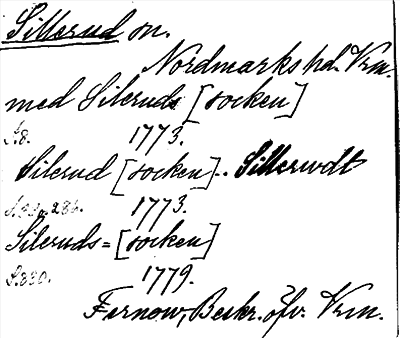 Sillerud sn.
Nordmarks hd. Vrm.
med Sileruds [socken]
S.8. 1773.
Silerud [socken].. Sillerudt
1773.
Sileruds= [socken]
S.830. 1779.
Fernow, Beskr. öfv. Vrm.